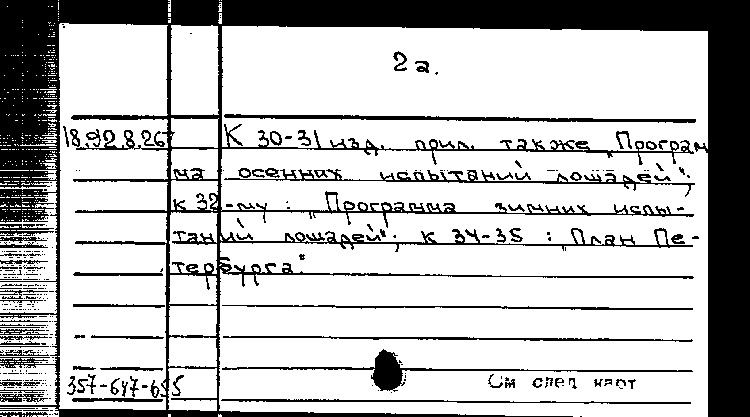 2а.
18.92.8.267 К 30-31 изд. прил. также „Програм
ма осенних испытаний лошадей“;
к 32-му : „Программа зимних испы-
таний лошадей“; к 34-35 : „План Пе-
тербурга“.
357-647-655
См след карт